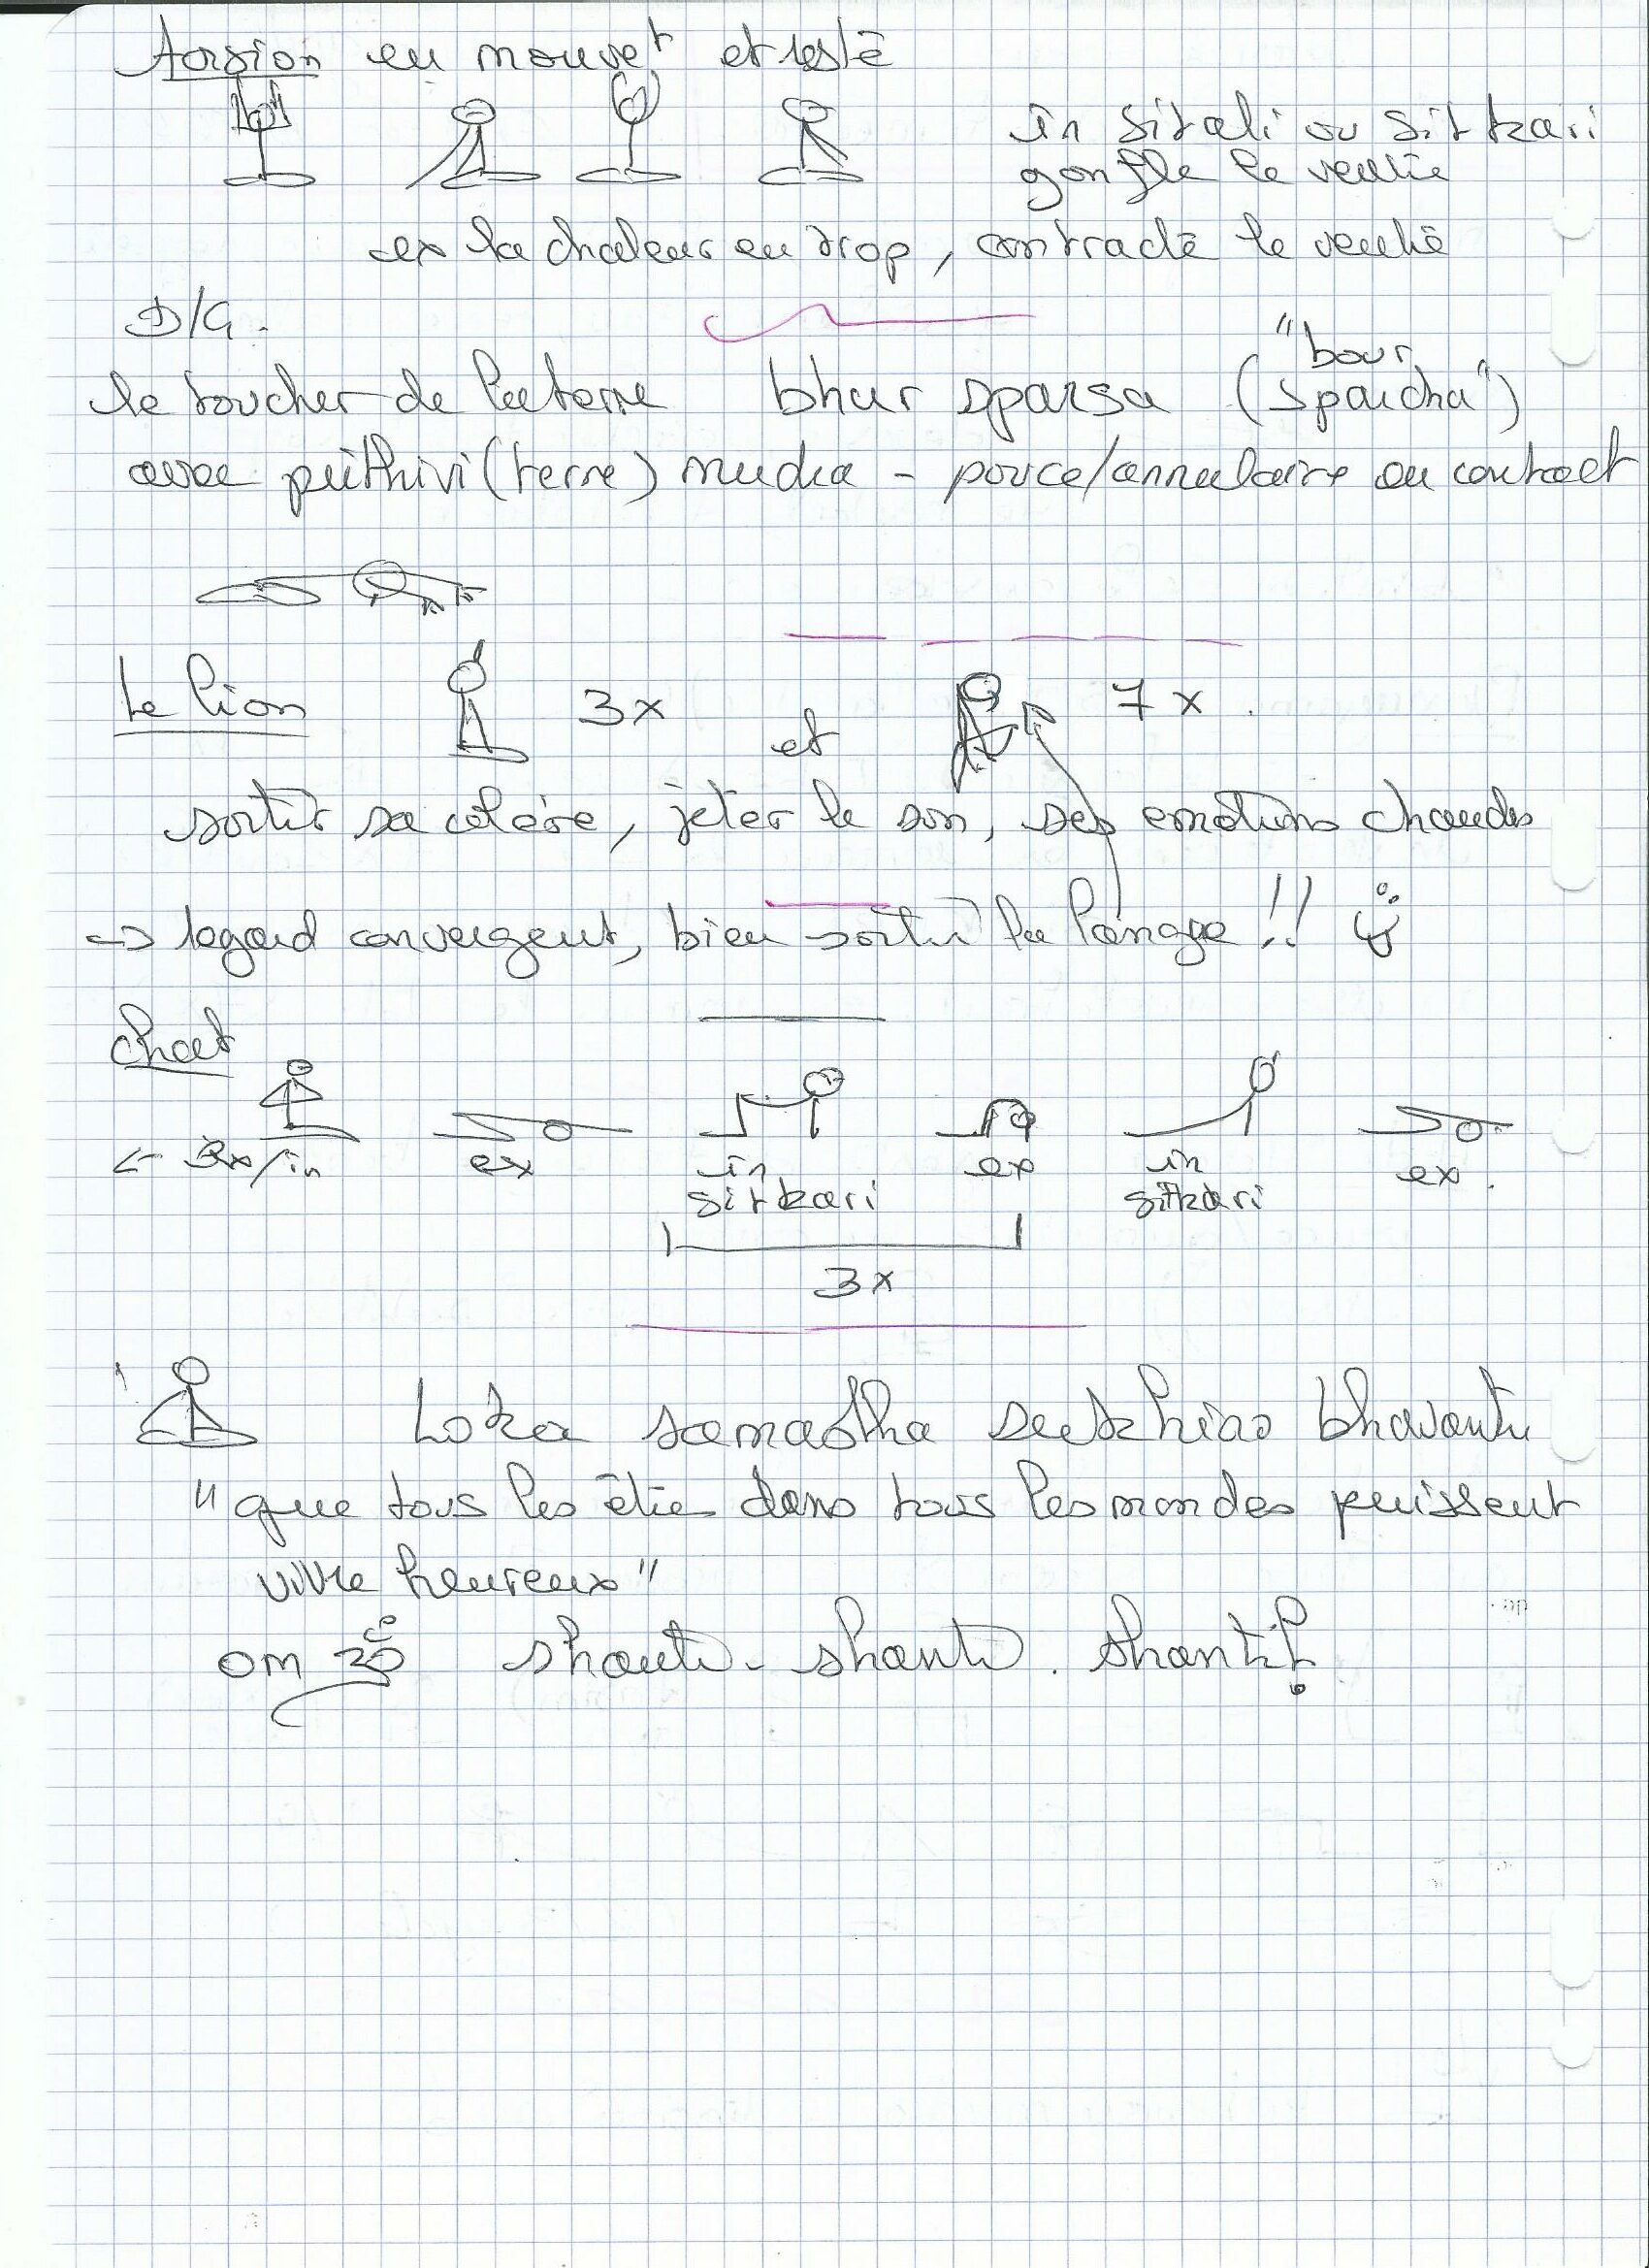 Torsion en mouvet et resté
in sitali ou sitkari
gonfle le ventre
ex la chaleur en trop, contracte le ventre
D/G.
le toucher de la terre bhur sparsa ("bour sparcha")
avec prithivi (terre) mudra - pouce/annulaire en contact
Le lion 3x et 7x.
sortir sa colère, jeter le son, ses emotions chaudes
→ regard convergent, bien sortir la langue !!
Chat
← 3x/in ex in ex in ex.
sitkari sitkari
3x
Loka samastha sukhino bhavantu
"que tous les êtres dans tous les mondes puissent
vivre heureux"
om ॐ shanti - shanti. shanti!